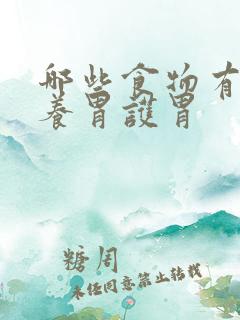 哪些食物有
養胃護胃
糖周
未任同意禁止转载